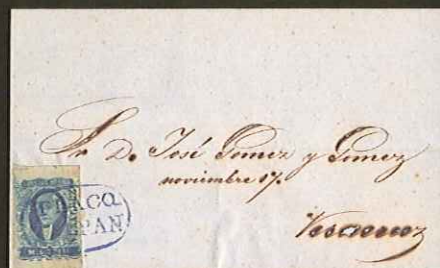 Sr. D. José Gomez y Gomez
noviembre 17.
Veracruz
TLACO
TALPAN